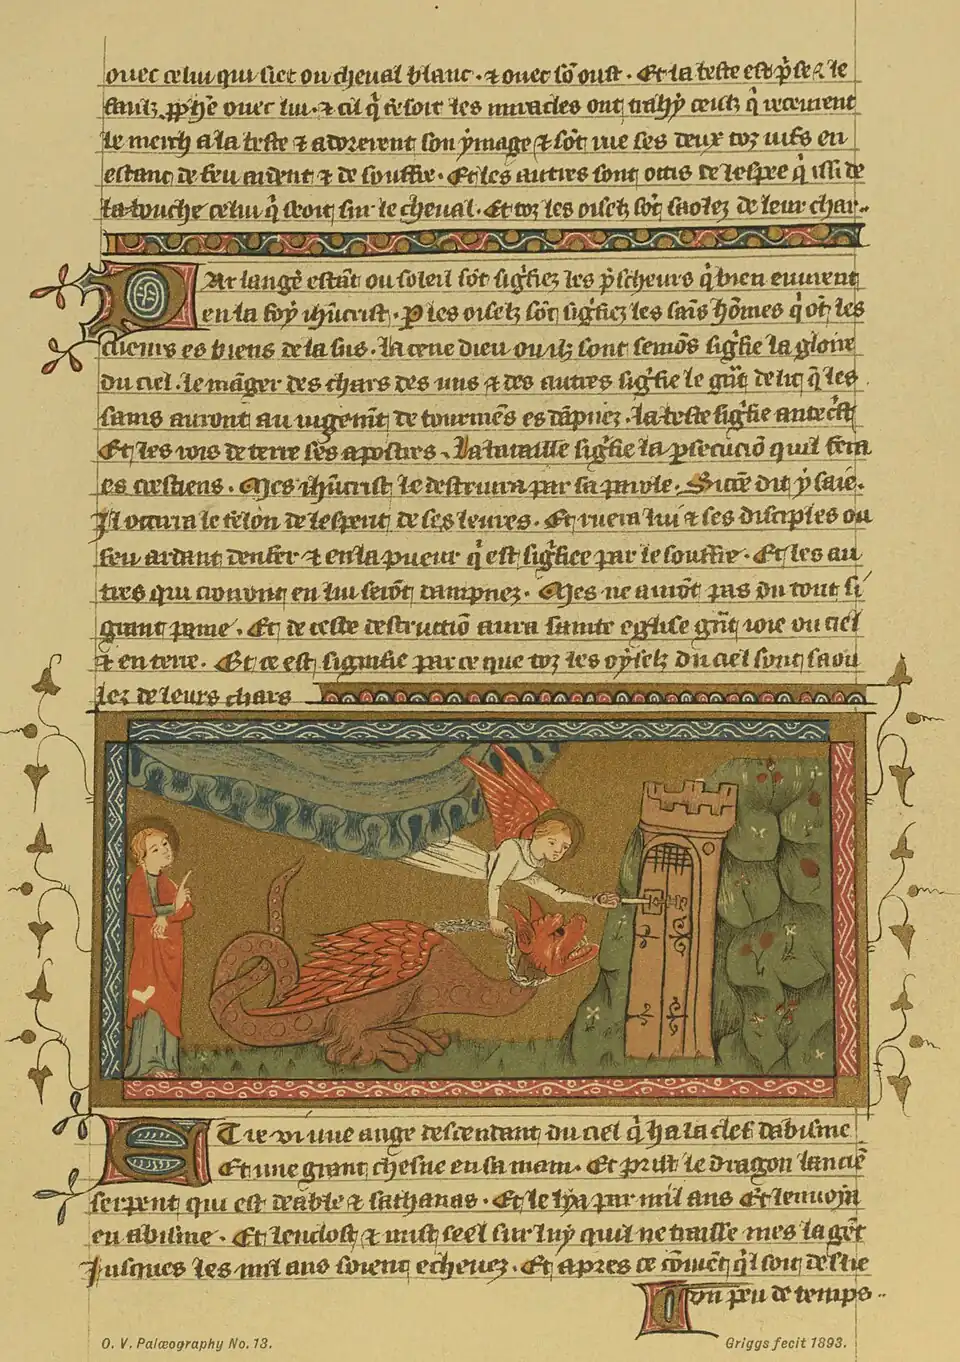 ouec celui qui siet ou cheual blanc. ⁊ ouec sō oust. Et la beste est p̄se ⁊ le
faulz pphē ouec lui. ⁊ cil q̄ fesoit les miracles ont trahy ceulz q̄ recoiuent
le merch a la beste ⁊ adorerent son ymage ⁊ sōt mis ces deux toz uifs en
estanc de feu ardent ⁊ de souffre. Et les autres sont occis de lespee q̄ issi de
la bouche celui q̄ seoit sur le cheual. Et toz les oiselz sōt saolez de leur char..
Par langē estāt ou soleil sōt sigfiez les p̄scheurs q̄ bien euurent
en la foy ihūcrist. P les oiselz sōt sigfiez les sais hōmes q̄ ōt les
cuers es biens de la sus. la cene dieu ou ilz sont semōs sigfie la gloire
du ciel. le māger des chars des uns ⁊ des autres sigfie le grāt delit q̄ les
sains auront au iugemēt de tourmēs es dāpnez. la beste sigfie antecrist
Et les rois de terre ses apostres. la bataille sigfie la p̄secuciō quil fera
es crestiens. Mes ihūcrist le destruira par sa parole. Sicōe dit ysaie.
Il occirra le felon de lesperit de ses leures. Et ruera lui ⁊ ses disciples ou
feu ardant denfer ⁊ en la pueur q̄ est sigfiee par le souffre. Et les au
tres qui creront en lui serōt dampnez. Mes ne aurōt pas du tout si
grant paine. Et de ceste destructiō aura sainte eglise grāt ioie ou ciel
⁊ en terre. Et ce est signifie par ce que toz les oyselz du ciel sont saou
lez de leurs chars
Et ie vi une ange descendant du ciel q̄ ha la clef dabisme
Et une grant chesne en sa main. Et prist le dragon lanciē
serpent qui est deable ⁊ sathanas. Et le lya par mil ans Et lenuoia
en abisme. Et lenclost ⁊ mist seel sur luy quil ne traisse mes la gēt
Iusques les mil ans soient echeuez. Et apres ce cōuiēt q̄l soit deslie
Un peu de temps..
O. V. Palæography No. 13.
Griggs fecit 1893.